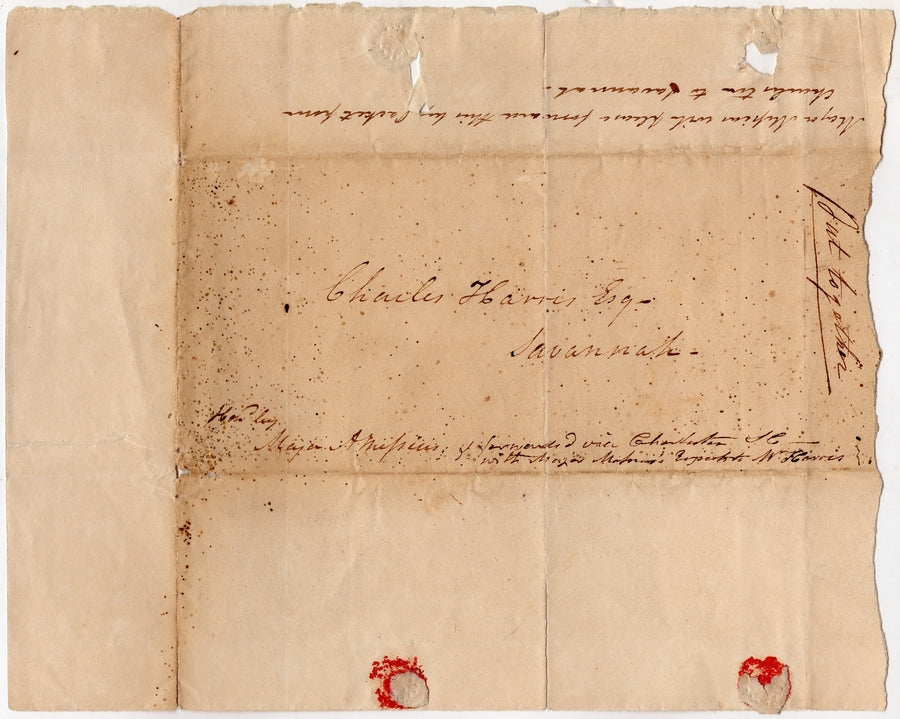 Major Messias will please forward this by Packet from
Charleston to Savannah -
Put together
Charles Harris Esq -
Savannah -
Hond by
Major A Messias, & forwarded via Charleston SC -
with Major Respects to Mr Harris